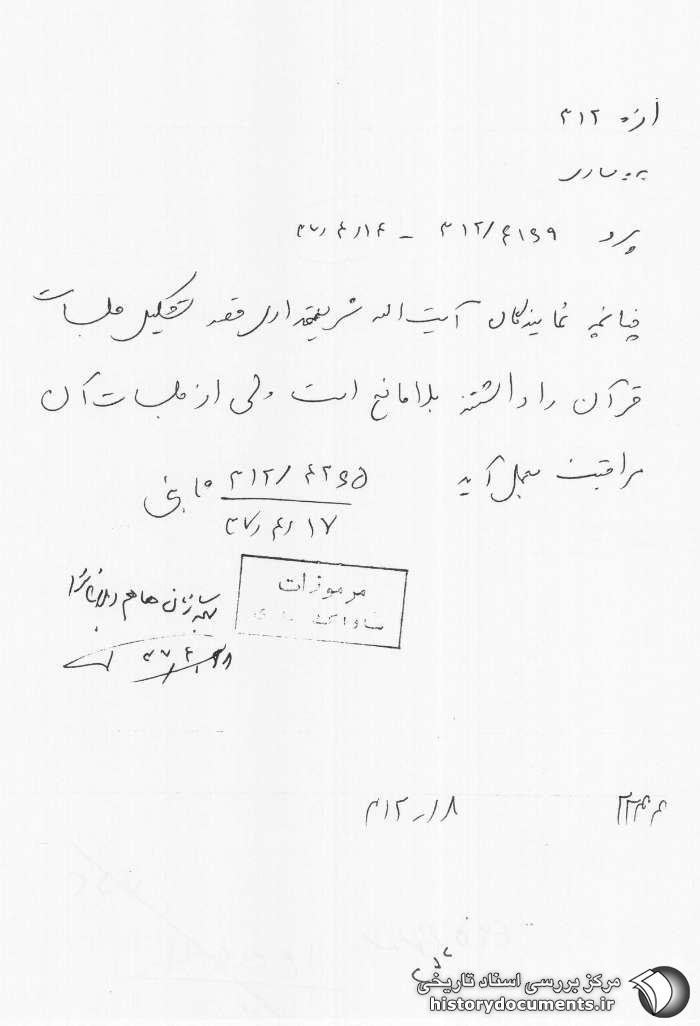 از ۳۱۲
به ساری
پیرو ۳۱۲/۴۱۶۹ - ۳۷/۴/۱۴
چنانچه نمایندگان آیت اله شریعتمداری قصد تشکیل جلسات
قرآن را داشته بلامانع است ولی از جلسات آن
مراقبت بعمل آید
۳۱۲/۴۲۶۵ ثابتی
۳۷/۴/۱۷
مرموزات
ساواک
به
۳۷/۴/۱۸
مرکز بررسی اسناد تاریخی
historydocuments.ir